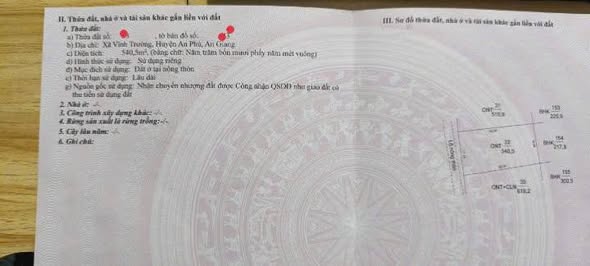 II. Thửa đất, nhà ở và tài sản khác gắn liền với đất
1. Thửa đất:
a) Thửa đất số: , tờ bản đồ số:
b) Địa chỉ: Xã Vĩnh Trường, Huyện An Phú, An Giang
c) Diện tích: 540,5m², (bằng chữ: Năm trăm bốn mươi phẩy năm mét vuông)
d) Hình thức sử dụng: Sử dụng riêng
đ) Mục đích sử dụng: Đất ở tại nông thôn
e) Thời hạn sử dụng: Lâu dài
g) Nguồn gốc sử dụng: Nhận chuyển nhượng đất được Công nhận QSDĐ như giao đất có thu tiền sử dụng đất
2. Nhà ở: -/-
3. Công trình xây dựng khác: -/-
4. Rừng sản xuất là rừng trồng: -/-
5. Cây lâu năm: -/-
6. Ghi chú:
III. Sơ đồ thửa đất, nhà ở và tài sản khác gắn liền với đất
ONT 31
BHK 153
ONT 32
540,5
BHK 154
217,9
BHK 155
300,5
ONT+CLN 33
619,2